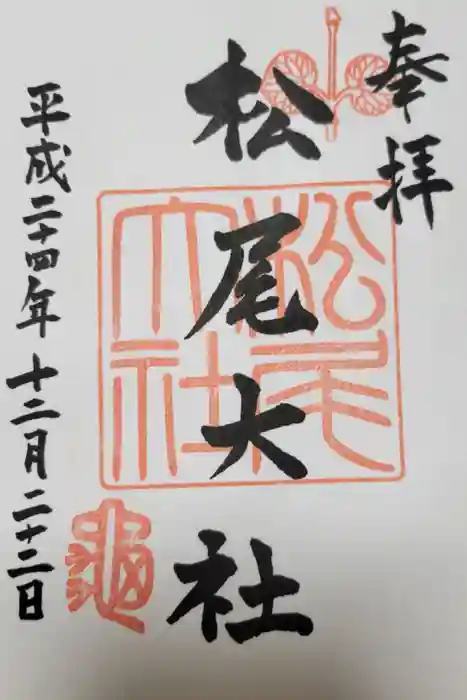 奉拝
松尾大社
平成二十四年十二月二十二日
松尾
大社
龜